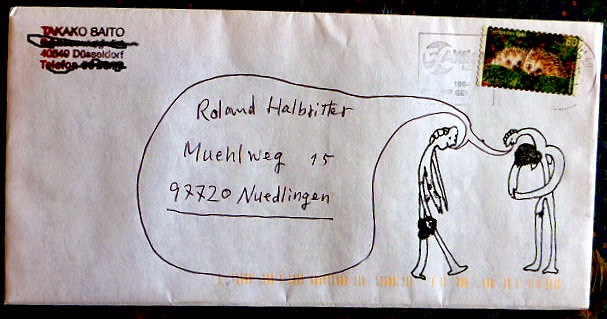 TAKAKO SAITO
40549 Düsseldorf
Telefon
Roland Halbritter
Muehlweg 15
97720 Nuedlingen